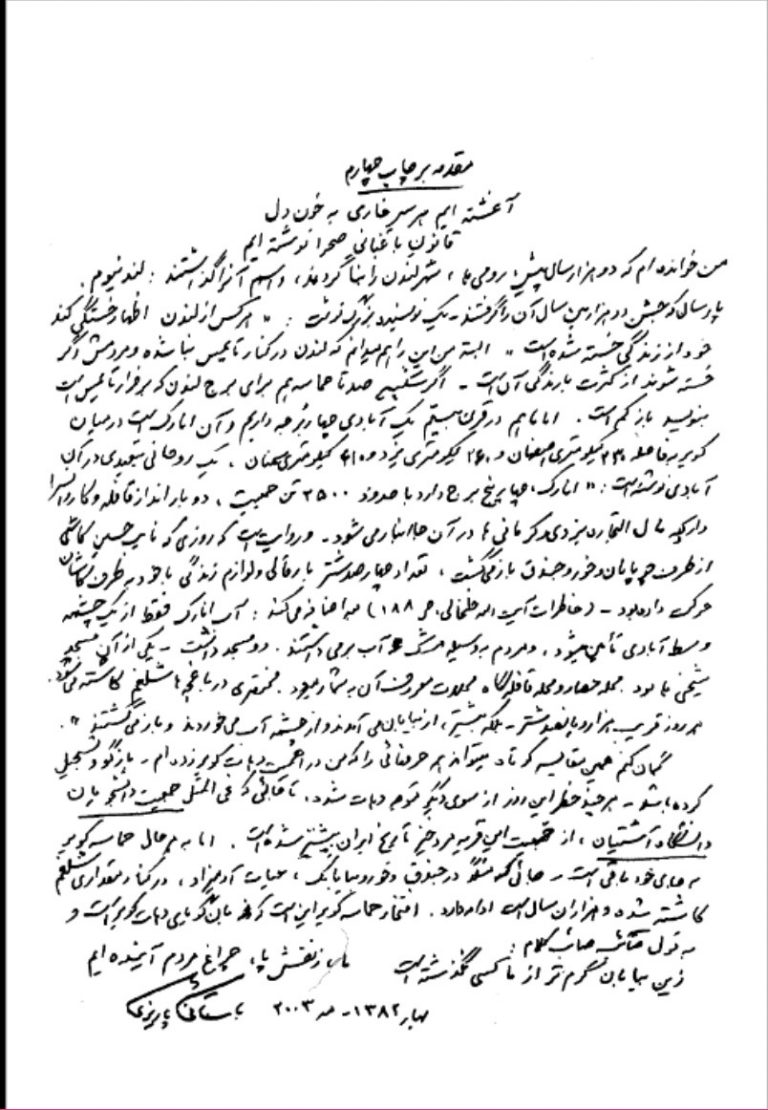 مقدمه بر چاپ چهارم
آغشته ایم هر سر خاری به خون دل
قانون باغبانی صحرا نوشته ایم
من خوانده ام که دو هزار سال پیش، رومی ها، شهر لندن را بنا کردند، و اسم آنرا گذاشتند: لندنیوم.
پارسال که جشن دو هزارمین سال آن را گرفتند - یک نویسنده بزرگ نوشت: «هر کس از لندن اظهار خستگی کند
خود از زندگی خسته شده است» البته من این را هم میدانم که لندن در کنار تایمس بنا شده و مردمش اگر
خسته شوند از کثرت بارندگی آن است - اگر شکسپیر صد تا حماسه هم برای برج لندن که بر فراز تایمس است
بنویسد باز کم است. اما ما هم در قرن بیستم یک آبادی چهار برجه داریم و آن انارک است در میان
کویر به فاصله ۲۳۰ کیلومتری اصفهان و ۲۶۰ کیلومتری یزد و ۶۱۰ کیلومتری سمنان. یک روحانی تبعیدی در آن
آبادی نوشته است: «انارک، چهار پنج برج دارد با حدود ۲۵۰۰ تن جمعیت، دو بارانداز قافله و کاروانسرا
دارد که مال التجاره یزدی و کرمانی ها در آن جا انبار می شود - و روایت است که روزی که نایب حسین کاشی
از طرف چوپانان و خور و جندق باز می گشت، تعداد چهارصد شتر بار قالی و لوازم زندگی با خود به طرف کاشان
حرکت داده بود - (خاطرات آیت الله خلخالی، ص ۱۸۸) هم اضافه می کند: آب انارک فقط از یک چشمه
وسط آبادی تأمین میشود، و مردم به وسیله مشک آب برمی داشتند. دو مسجد داشت - یکی از آن مسجد
شیخی ها بود. محله حصار و محله قافله گاه محلات معروف آن به شمار میرود. مختصری در باغچه ها شلغم کاشته می شود.
هر روز قریب هزار و پانصد شتر - بلکه بیشتر، از بیابان می آمدند و از چشمه آب می خوردند و باز می گشتند».
گمان کنم همین مقایسه کوتاه میتواند همه حرفهائی را که من در اهمیت دهات کویر زده ام - بازگو و تسجیل
کرده باشد - هر چند خطر این روز از سوی دیگر متوجه دهات شود، تا جائی که فی المثل جمعیت دانشجویان
دانشگاه آشتیان، از جمعیت این قریه مردخیز تاریخ ایران بیشتر شده است. اما به هر حال حماسه کویر
به جای خود باقی است - جائی که در جندق و خور و بیابانک، حیات آدمیزاد، در کنار مقداری شلغم
کاشته شده و هزاران سال است ادامه دارد. افتخار حماسه کویر این است که زبان گویای دهات کویر است و
به قول صائب کلام:
زین بیابان گرم تر از ما کسی نگذشته است ما، ز نقش پا، چراغ مردم آینده ایم
بهار ۱۳۸۲ - مه ۲۰۰۳ باستانی پاریزی